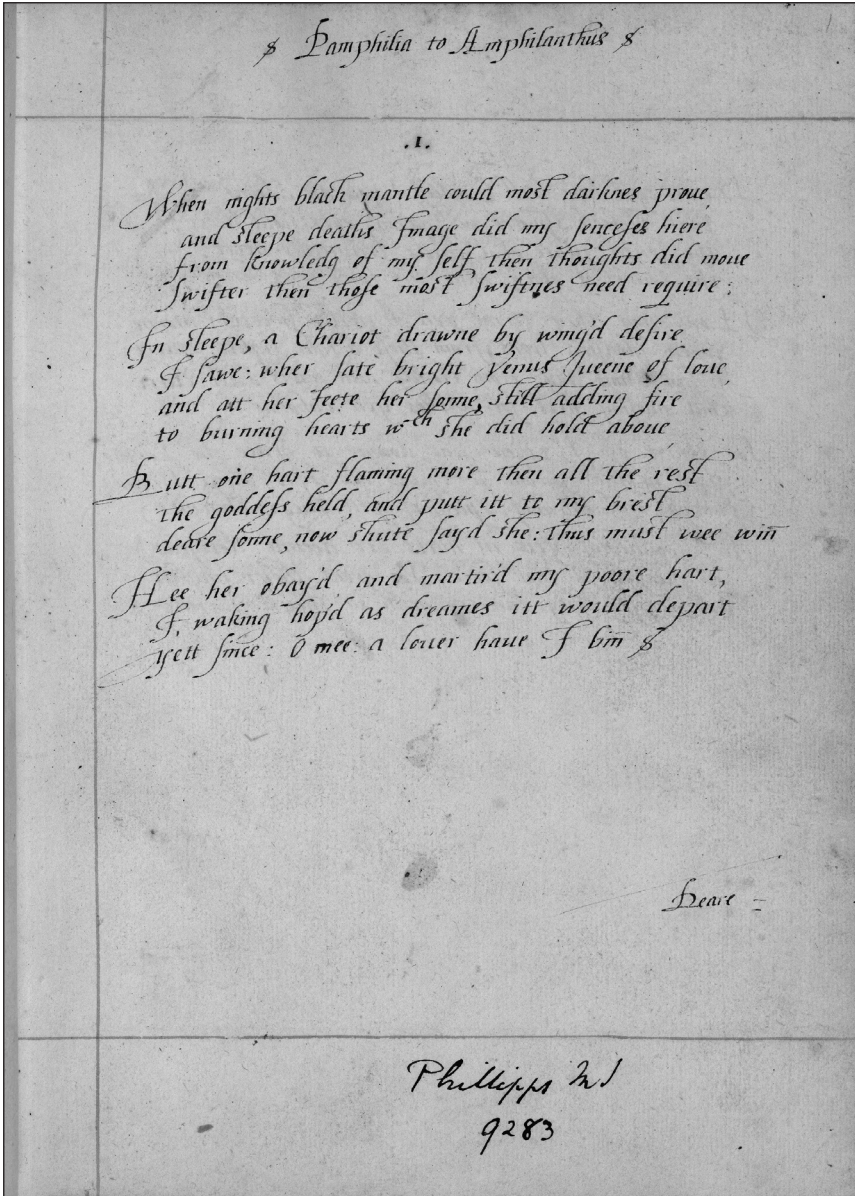 $ Pamphilia to Amphilanthus $
1
.1.
When nights black mantle could most darknes prove,
and sleepe deaths Image did my senceses hiere
from knowledg of my self, then thoughts did move
swifter then those most swiftnes need require:
In sleepe, a Chariot drawne by wing'd desire
I sawe: wher sate bright Venus Queene of love,
and att her feete her sonne, still adding fire
to burning hearts wch she did hold above,
Butt one hart flaming more then all the rest
the goddess held, and putt itt to my brest
deare sonne, now shute sayd she: thus must wee winn
Hee her obay'd and martir'd my poore hart,
I, waking hop'd as dreames itt would depart
yett since: O mee: a lover have I binn $
Deare =
Phillipps MS
9283